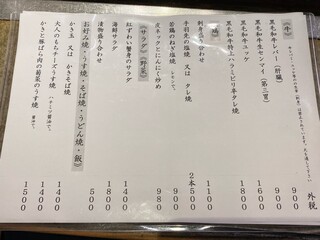 《牛》
外税
黒毛和牛レバー(肝臓) 900
黒毛和牛生センマイ(第三胃) 900
黒毛和牛ユッケ 1600
黒毛和牛特上ハラミピリ辛タレ焼 1800
《鶏》
刺身盛り合わせ 1100
手羽先の塩焼 又は タレ焼 2本500
若鶏のねぎ塩焼 レモンで。 900
皮ネックとにんにく炒め 980
《サラダ》《野菜》
紅ずわい蟹身のサラダ 1400
海鮮サラダ 1800
漬物盛り合わせ 500
《お好み焼・うす焼・そば焼・うどん焼・飯》
かき玉 又は かきそば焼 1400
大人のはちみつチーズうす焼 1400
かきと豚ばら肉の菊菜のうす焼 醤油で。 1500